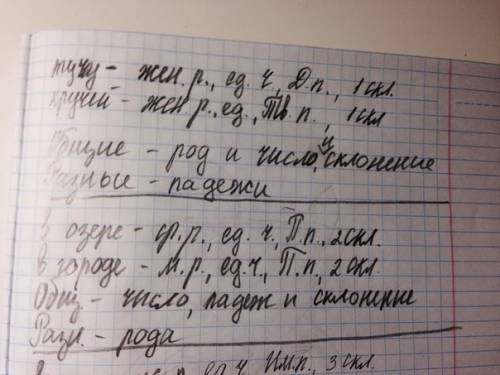 тучу - жен. р., ед. ч., Д.п., 1 скл.
кручей - жен р., ед., Тв. п., 1 скл
Общие - род и число, и склонение
Разные - падежи
в озере - ср. р., ед. ч., П.п., 2 скл.
в городе - м. р., ед. ч., П.п., 2 скл.
Общ - число, падеж и склонение
Разн. - рода
ед. ч Им.п., 3 скл.